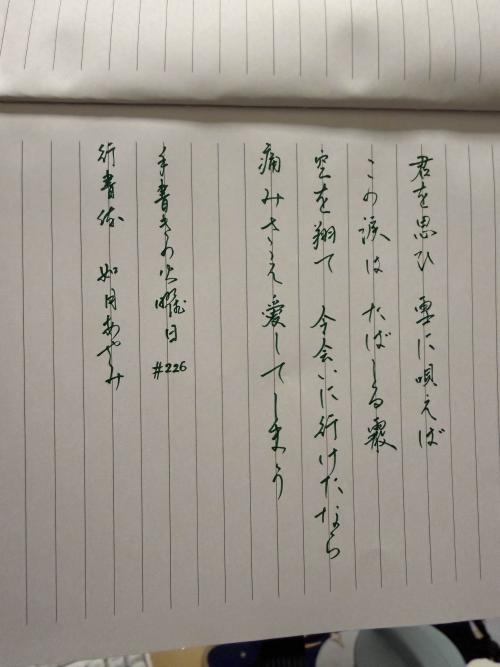 君を思ひ に唄えば
この涙は たばしる霰
空を翔て 今会いに行けたなら
痛みさえ愛してしまう
手書きの火曜日 #226
行書体 如月あやみ